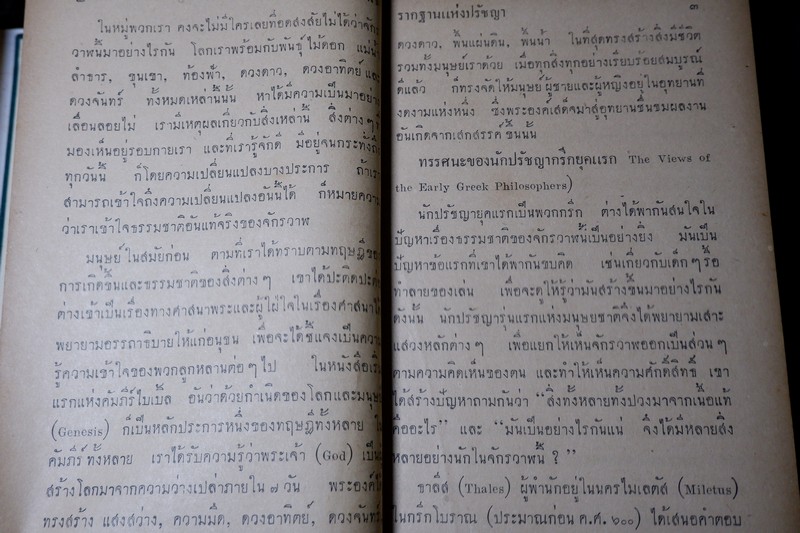 ๒
ในหมู่พวกเรา คงจะไม่มีใครเลยที่อดสงสัยไม่ได้ว่า
วาฬนี้มาอย่างไรกัน โลกเราพร้อมกับพันธุ์ไม้ดอก แม่น้ำ
ลำธาร, ขุนเขา, ท้องฟ้า, ดวงดาว, ดวงอาทิตย์ และ
ดวงจันทร์ ทั้งหมดเหล่านี้นั้น หาได้มีความเป็นมาอย่าง
เลื่อนลอยไม่ เรามีเหตุผลเกี่ยวกับสิ่งเหล่านี้ สิ่งต่าง ๆ ที่
มองเห็นอยู่รอบกายเรา และที่เรารู้จักดี มีอยู่จนกระทั่งถึง
ทุกวันนี้ ก็โดยความเปลี่ยนแปลงบางประการ ถ้าเรา
สามารถเข้าใจถึงความเปลี่ยนแปลงอันนี้ได้ ก็หมายความ
ว่าเราเข้าใจธรรมชาติอันแท้จริงของจักรวาฬ
มนุษย์ในสมัยก่อน ตามที่เราได้ทราบตามทฤษฎีของ
การเกิดขึ้นและธรรมชาติของสิ่งต่าง ๆ เขาได้ปะติดปะต่อ
ต่างเข้าเป็นเรื่องทางศาสนาพระและผู้ใฝ่ใจในเรื่องศาสนาได้
พยายามอรรถาธิบายให้แก่อนุชน เพื่อจะได้ชี้แจงเป็นความ
รู้ความเข้าใจของพวกลูกหลานต่อ ๆ ไป ในหนังสือเริ่ม
แรกแห่งคัมภีร์ไบเบิ้ล อันว่าด้วยกำเนิดของโลกและมนุษย์
(Genesis) ก็เป็นหลักประการหนึ่งของทฤษฎีทั้งหลาย ใน
คัมภีร์ทั้งหลาย เราได้รับความรู้ว่าพระเจ้า (God) เป็นผู้
สร้างโลกมาจากความว่างเปล่าภายใน ๗ วัน พระองค์ได้
ทรงสร้าง แสงสว่าง, ความมืด, ดวงอาทิตย์, ดวงจันทร์
รากฐานแห่งปรัชญา ๓
ดวงดาว, พื้นแผ่นดิน, พื้นน้ำ ในที่สุดทรงสร้างสิ่งมีชีวิต
รวมทั้งมนุษย์เราด้วย เมื่อทุกสิ่งทุกอย่างเรียบร้อยสมบูรณ์
ดีแล้ว ก็ทรงจัดให้มนุษย์ผู้ชายและผู้หญิงอยู่ในอุทยานที่
งดงามแห่งหนึ่ง ซึ่งพระองค์เสด็จมาสู่อุทยานชื่นชมผลงาน
อันเกิดจากเสกสรรค์ขึ้นนั้น
ทรรศนะของนักปรัชญากรีกยุคแรก The Views of
the Early Greek Philosophers)
นักปรัชญายุคแรกเป็นพวกกรีก ต่างได้พากันสนใจใน
ปัญหาเรื่องธรรมชาติของจักรวาฬนี้เป็นอย่างยิ่ง มันเป็น
ปัญหาข้อแรกที่เขาได้พากันขบคิด เช่นเกี่ยวกับเด็ก ๆ รื้อ
ทำลายของเล่น เพื่อจะดูให้รู้ว่ามันสร้างขึ้นมาอย่างไรกัน
ดังนั้น นักปรัชญารุ่นแรกแห่งมนุษยชาติจึงได้พยายามเสาะ
แสวงหลักต่าง ๆ เพื่อแยกให้เห็นจักรวาฬออกเป็นส่วน ๆ
ตามความคิดเห็นของตน และทำให้เห็นความศักดิ์สิทธิ์ เขา
ได้สร้างปัญหาถามกันว่า “สิ่งทั้งหลายทั้งปวงมาจากเนื้อแท้
คืออะไร” และ “มันเป็นอย่างไรกันแน่ จึงได้มีหลายสิ่ง
หลายอย่างนักในจักรวาฬนี้ ? ”
ธาลีส (Thales) ผู้พำนักอยู่ในนครไมเลตัส (Miletus)
ในกรีกโบราณ (ประมาณก่อน ค.ศ. ๖๐๐) ได้เสนอคำตอบ